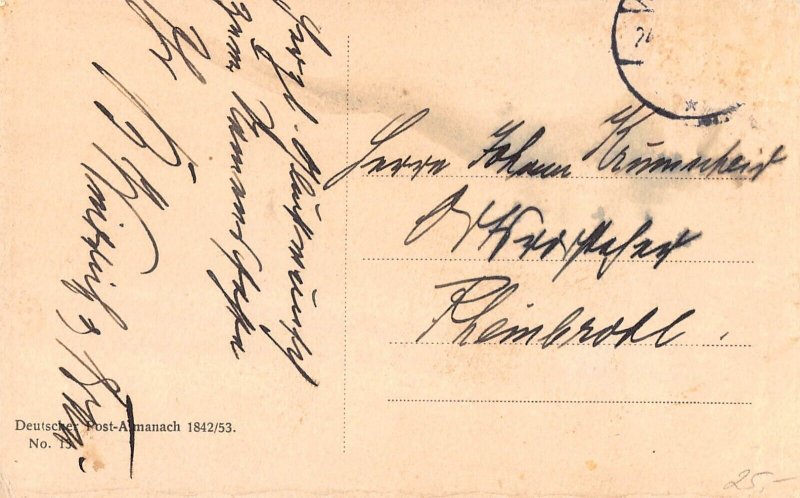 Herzl. Glückwunsch
zum Namenstage
Herrn Johann Krumscheid
Ortsvorsteher
Rheinbrohl.
Deutscher Post-Almanach 1842/53.
No. 15.
24
25,-